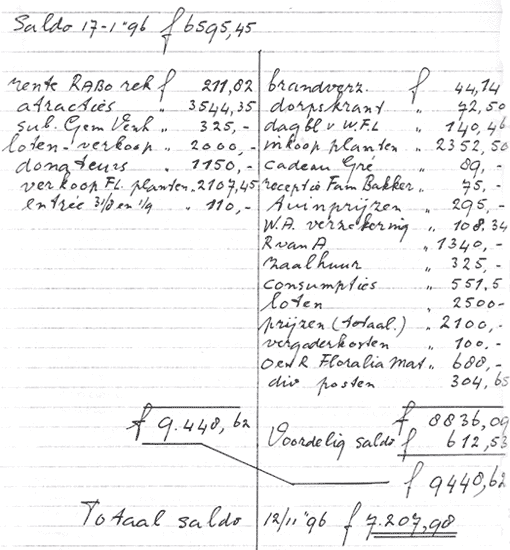 Saldo 17-1-'96 f 6595,45
rente RABO rek f 211,82
atracties " 3544,35
sub. Gem Venh " 325,-
loten-verkoop " 2000,-
donateurs " 1150,-
verkoop FL. planten " 2107,45
entrée 31/8 en 1/9 " 110,-
f 9.448,62
brandverz. f 44,14
dorpskrant " 72,50
dagbl v W.F.L " 140,46
inkoop planten " 2352,50
cadeau Gré " 89,-
receptie Fam Bakker " 75,-
Tuinprijzen " 295,-
W.A. verzekering " 108.34
R van A " 1340,-
zaalhuur " 325,-
consumpties " 551,5
loten " 2500-
prijzen (totaal.) " 2100,-
vergaderkosten " 100.-
O en R Floralia mat " 688,-
div posten 304,65
f 8836,09
Voordelig saldo f 612,53
f 9448,62
Totaal saldo 12/11 '96 f 7.207,98